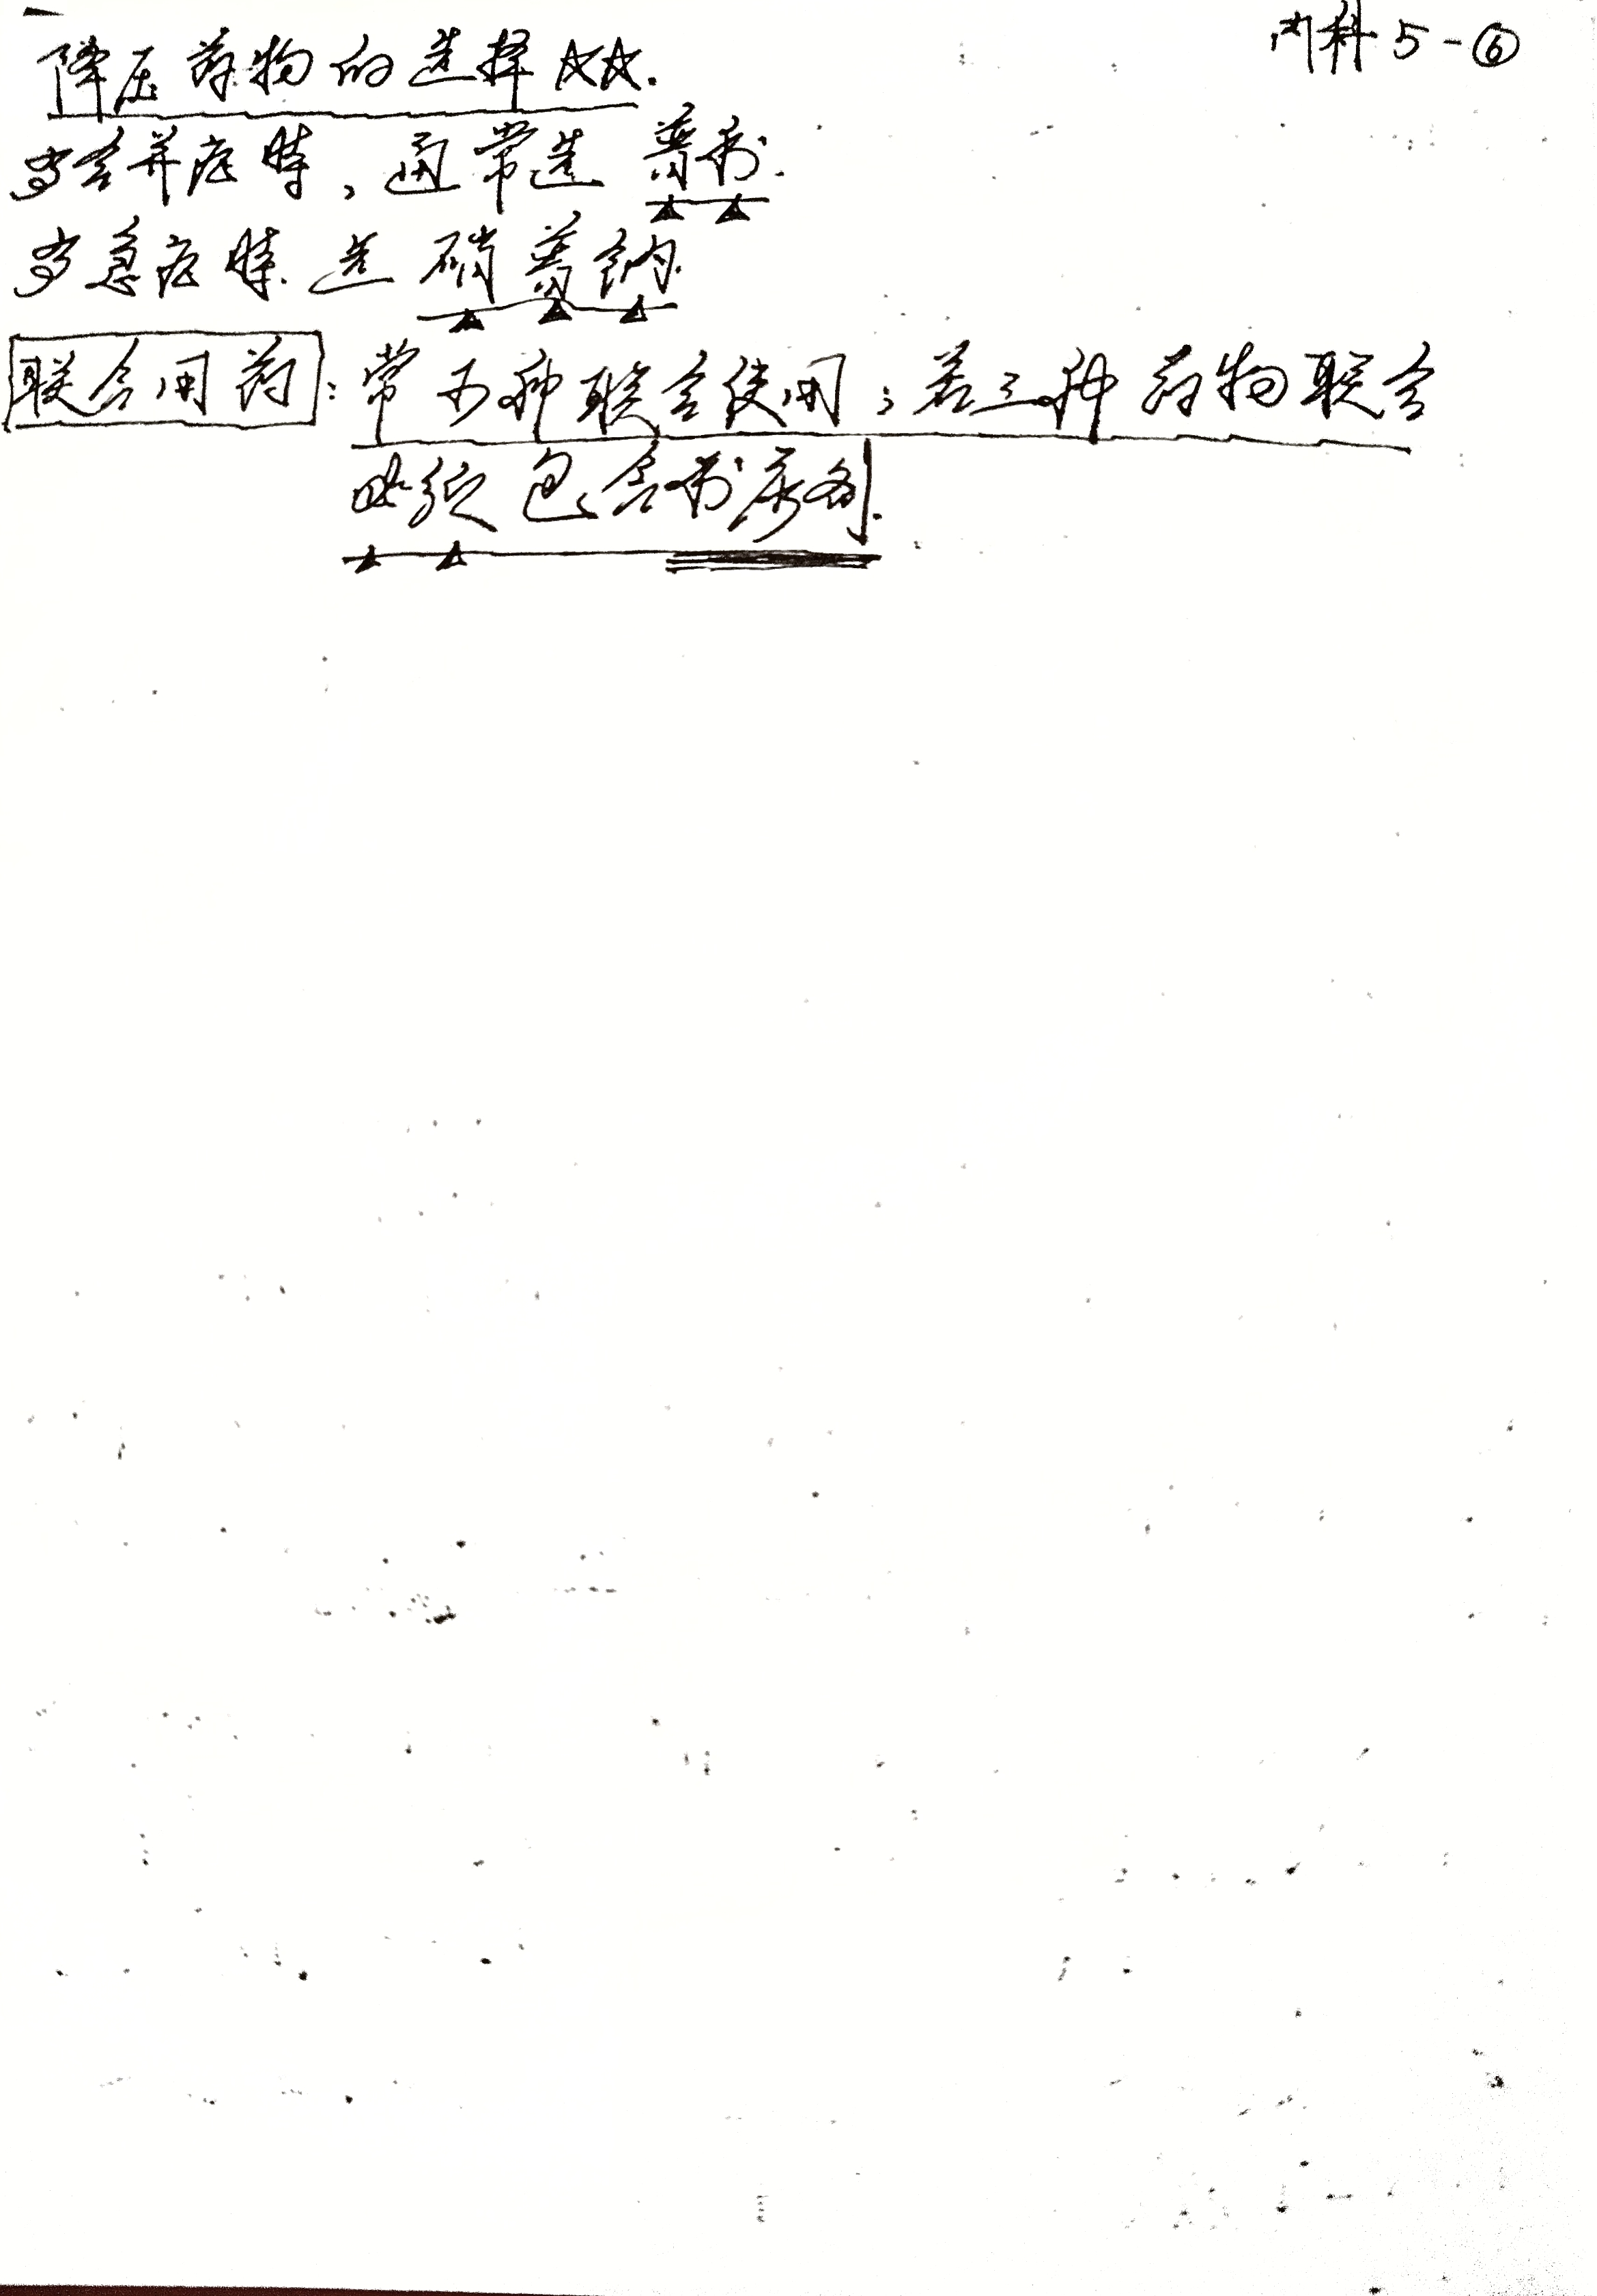 内科 5-⑥
降压药物的选择☆☆.
多合并症时，通常选 普利.
多急症时.选 硝普钠.
联合用药：常两种联合使用；若三种药物联合
必须包含利尿剂.